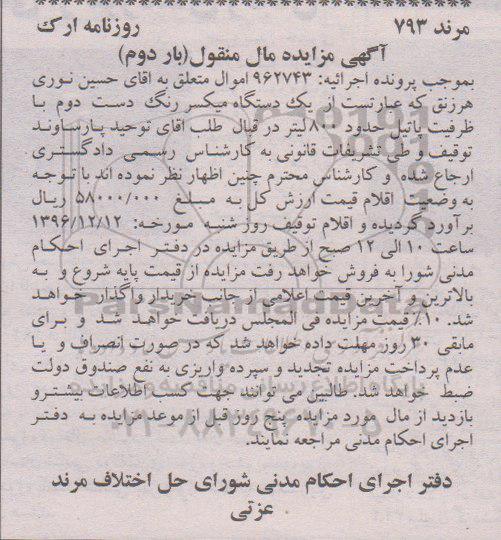 مرند ۷۹۳ روزنامه ارک
آگهی مزایده مال منقول(بار دوم)
بموجب پرونده اجرائیه: ۹۶۲۷۴۳ اموال متعلق به اقای حسین نوری
هرزنق که عبارتست از یک دستگاه میکسر رنگ دست دوم با
ظرفیت پاتیل حدود ۸۰۰ لیتر در قبال طلب اقای توحید پارساوند
توقیف و طی تشریفات قانونی به کارشناس رسمی دادگستری
ارجاع شده و کارشناس محترم چنین اظهار نظر نموده اند با توجه
به وضعیت اقلام قیمت ارزش کل به مبلغ ۵۸۰۰۰/۰۰۰ ریال
برآورد گردیده و اقلام توقیف روز شنبه مورخه: ۱۳۹۶/۱۲/۱۲
ساعت ۱۰ الی ۱۲ صبح از طریق مزایده در دفتر اجرای احکام
مدنی شورا به فروش خواهد رفت مزایده از قیمت پایه شروع و به
بالاترین و آخرین قیمت اعلامی از جانب خریدار واگذار خواهد
شد. ۱۰٪ قیمت مزایده فی المجلس دریافت خواهد شد و برای
مابقی ۳۰ روز مهلت داده خواهد شد که در صورت انصراف و یا
عدم پرداخت مزایده تجدید و سپرده واریزی به نفع صندوق دولت
ضبط خواهد شد. طالبین می توانند جهت کسب اطلاعات بیشتر و
بازدید از مال مورد مزایده پنج روز قبل از موعد مزایده به دفتر
اجرای احکام مدنی مراجعه نمایند.
دفتر اجرای احکام مدنی شورای حل اختلاف مرند
عزتی
ParsNamadData
پایگاه اطلاع رسانی مناقصه و مزایده
۰۲۱-۸۸۳۴۹۶۷۰-۵